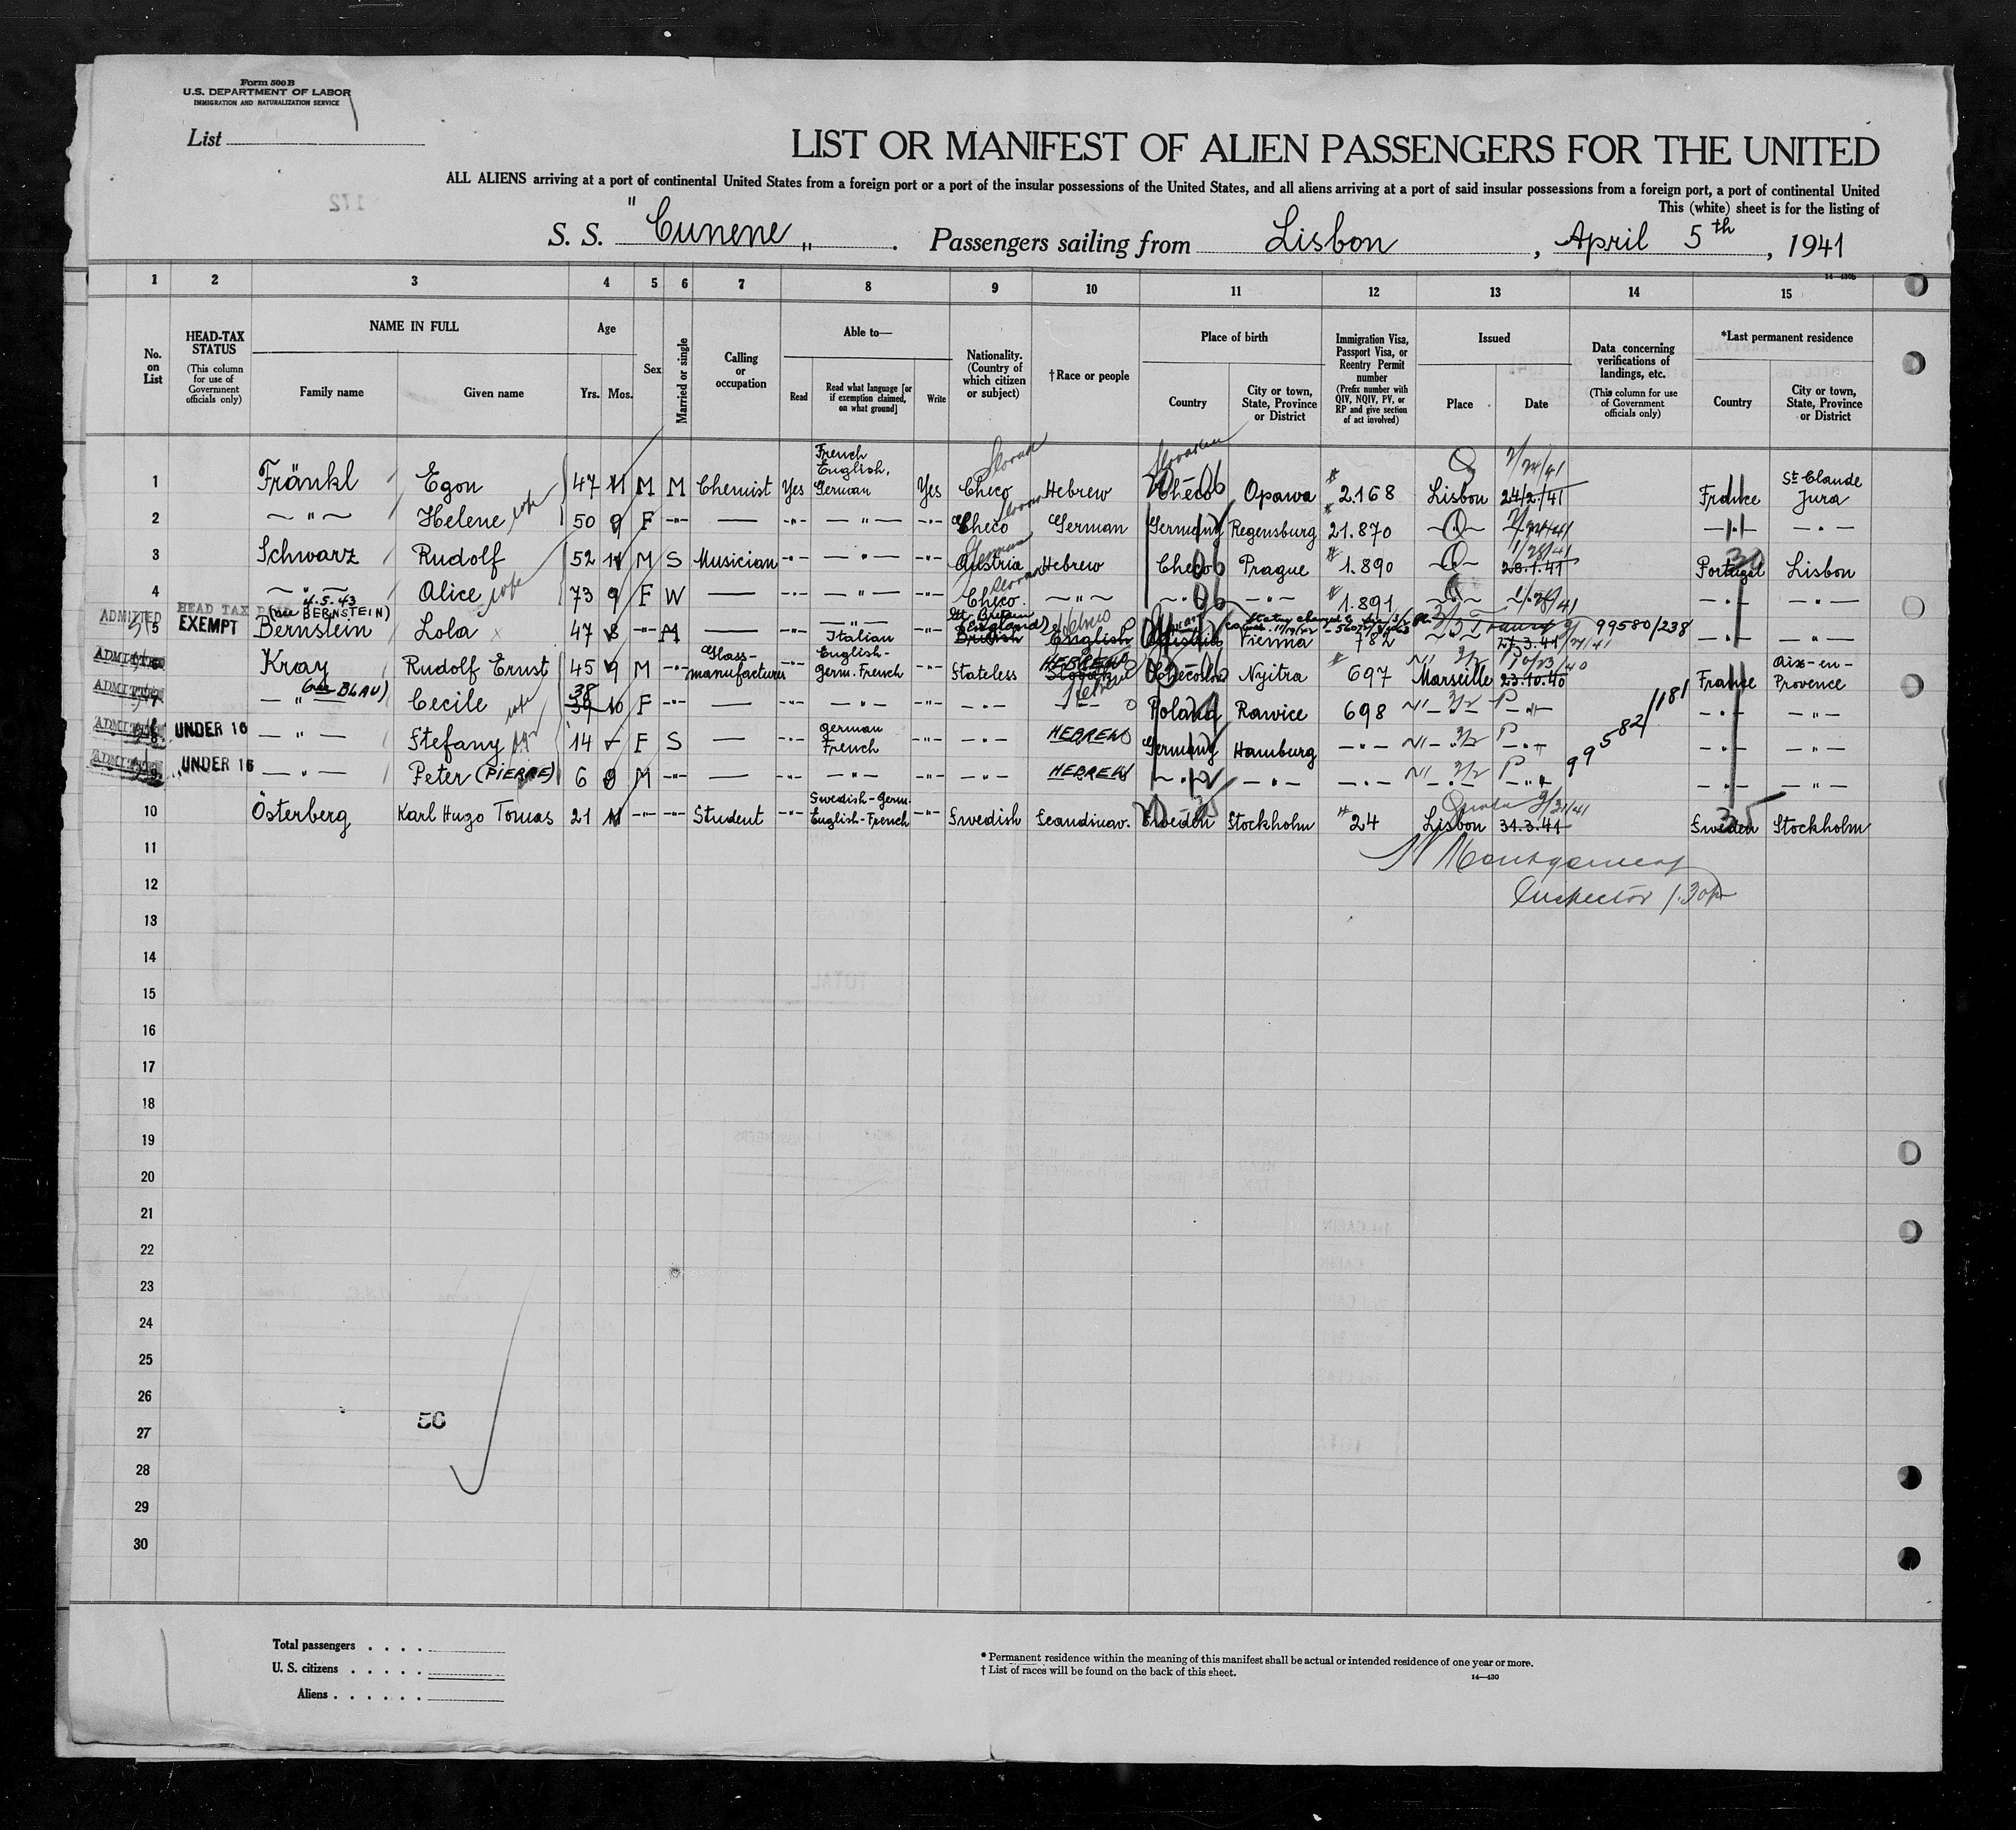 Form 500 B
U.S. DEPARTMENT OF LABOR
IMMIGRATION AND NATURALIZATION SERVICE
List
LIST OR MANIFEST OF ALIEN PASSENGERS FOR THE UNITED
ALL ALIENS arriving at a port of continental United States from a foreign port or a port of the insular possessions of the United States, and all aliens arriving at a port of said insular possessions from a foreign port, a port of continental United
This (white) sheet is for the listing of
172
S. S. "Cunene" . Passengers sailing from Lisbon, April 5th, 1941
1 2 3 4 5 6 7 8 9 10 11 12 13 14 15
No. on List
HEAD-TAX STATUS (This column for use of Government officials only)
NAME IN FULL Family name Given name
Age Yrs. Mos.
Sex
Married or single
Calling or occupation
Able to— Read Read what language [or if exemption claimed, on what ground] Write
Nationality. (Country of which citizen or subject)
†Race or people
Place of birth Country City or town, State, Province or District
Immigration Visa, Passport Visa, or Reentry Permit number (Prefix number with QIV, NQIV, PV, or RP and give section of act involved)
Issued Place Date
Data concerning verifications of landings, etc. (This column for use of Government officials only)
*Last permanent residence Country City or town, State, Province or District
1 Fränkl Egon 47 11 M M Chemist Yes French English, German Yes Checo Hebrew Checo Opawa # 2.168 Lisbon 24/2/41 France St Claude Jura
2 — " — Helene wife 50 9 F -"- — -"- — " — -"- Checo German Germany Regensburg 21.870 — " — — " —
3 Schwarz Rudolf 52 11 M S Musician -"- — " — -"- Austria Hebrew Checo Prague # 1.890 1/28/41 28.1.41 Portugal Lisbon
4 — " — Alice 73 9 F W — -"- — " — -"- Checo. — " — — " — — " — # 1.891 — " — — " —
ADMITTED 5 HEAD TAX EXEMPT 4.5.43 (née BERNSTEIN) Bernstein Lola 47 8 -"- M — -"- — " — Italian -"- Gt. Britain (England) British English Austria Vienna 982 27.3.41 99580/238 — " — — " —
ADMITTED 6 Kray Rudolf Ernst 45 9 M -"- Glass-manufacturer -"- English-Germ.-French -"- Stateless HEBREW Nyitra # 697 Marseille 10/23/40 23.10.40 France Aix-en-Provence
ADMITTED 7 — " — BLAU) Cecile wife 38 39 10 F -"- — -"- — " — -"- — " — Hebrew Poland Rawice 698 — " — — " —
ADMITTED 8 UNDER 16 — " — Stefany 14 F S — -"- German French -"- — " — HEBREW Germany Hamburg — " — 99582/1181 — " — — " —
ADMITTED 9 UNDER 16 — " — Peter (PIERRE) 6 9 M -"- — -"- — " — -"- — " — HEBREW — " — — " — — " — — " — — " —
10 Österberg Karl Hugo Tomas 21 11 -"- -"- Student -"- Swedish-Germ. English-French -"- Swedish Scandinav. Sweden Stockholm # 24 Lisbon 3/31/41 31.3.41 Sweden Stockholm
11 Montgomery
12 Inspector 1.30p
13
14
15
16
17
18
19
20
21
22
23
24
25
26
50
27
28
29
30
Total passengers . . . .
U. S. citizens . . . . .
Aliens . . . . . .
* Permanent residence within the meaning of this manifest shall be actual or intended residence of one year or more.
† List of races will be found on the back of this sheet.
14—430